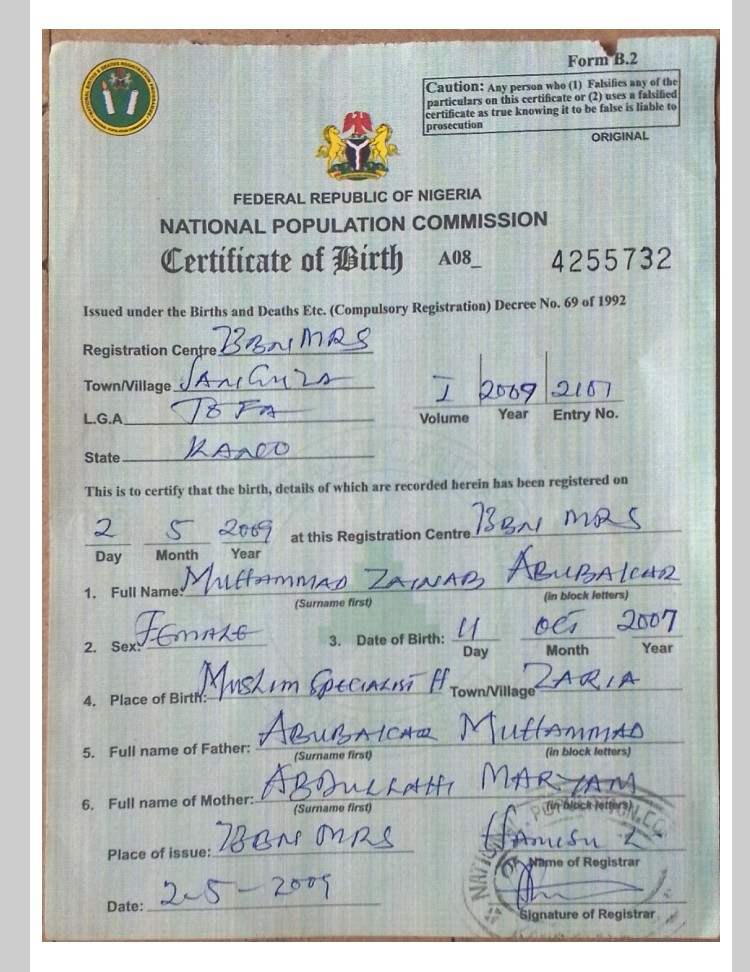 Form B.2
Caution: Any person who (1) Falsifies any of the
particulars on this certificate or (2) uses a falsified
certificate as true knowing it to be false is liable to
prosecution
ORIGINAL
FEDERAL REPUBLIC OF NIGERIA
NATIONAL POPULATION COMMISSION
Certificate of Birth A08_ 4255732
Issued under the Births and Deaths Etc. (Compulsory Registration) Decree No. 69 of 1992
Registration Centre BBN MRS
Town/Village
L.G.A TOFA
I 2009 2107
Volume Year Entry No.
State KANO
This is to certify that the birth, details of which are recorded herein has been registered on
2 5 2009 at this Registration Centre BBN MRS
Day Month Year
1. Full Name: MUHAMMAD ZAINAB ABUBAKAR
(Surname first) (in block letters)
2. Sex: FEMALE 3. Date of Birth: 11 OCT 2007
Day Month Year
4. Place of Birth: MUSLIM SPECIALIST H Town/Village ZARIA
5. Full name of Father: ABUBAKAR MUHAMMAD
(Surname first) (in block letters)
6. Full name of Mother: ABDULLAHI MARYAM
(Surname first) (in block letters)
Place of issue: BBN MRS
Name of Registrar
Date: 2-5-2009
Signature of Registrar